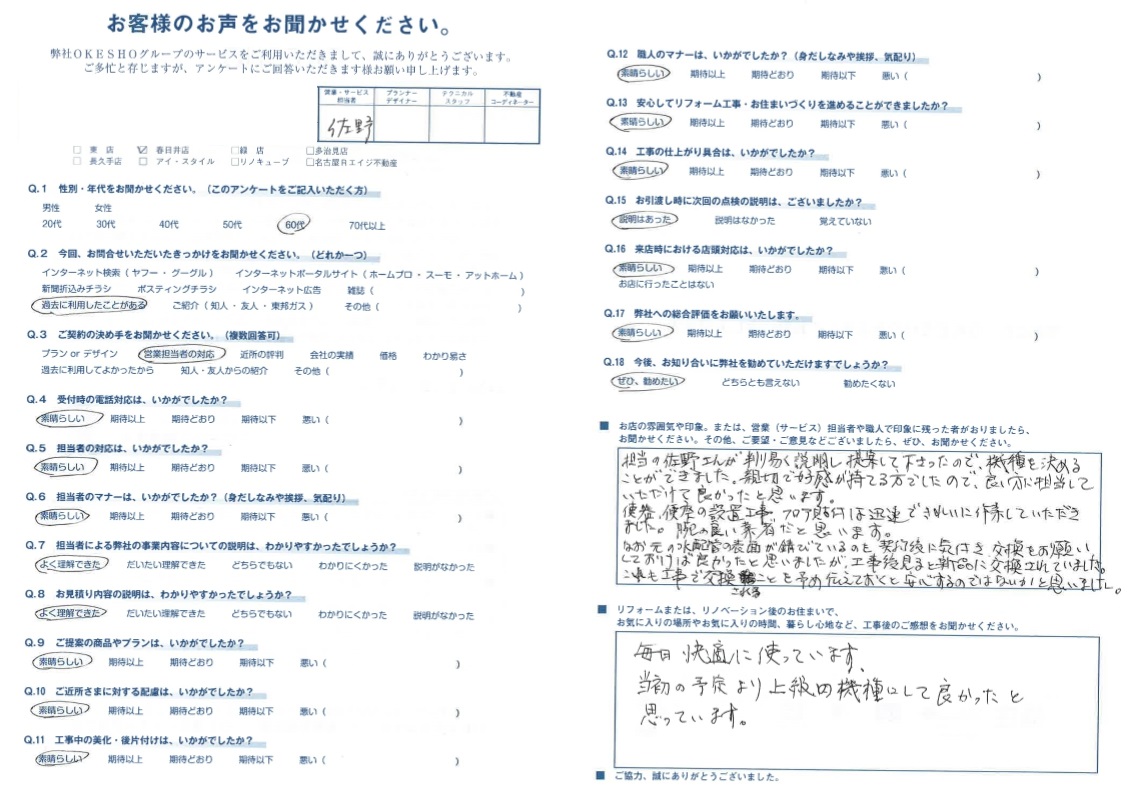 お客様のお声をお聞かせください。
弊社OKESHOグループのサービスをご利用いただきまして、誠にありがとうございます。
ご多忙と存じますが、アンケートにご回答いただきます様お願い申し上げます。
営業・サービス担当者 プランナーデザイナー テクニカルスタッフ 不動産コーディネーター
佐野
□ 東 店 ☑ 春日井店 □緑 店 □多治見店
□ 長久手店 □ アイ・スタイル □リノキューブ □名古屋Rエイジ不動産
Q.1 性別・年代をお聞かせください。(このアンケートをご記入いただく方)
男性 女性
20代 30代 40代 50代 60代 70代以上
Q.2 今回、お問合せいただいたきっかけをお聞かせください。(どれか一つ)
インターネット検索(ヤフー・グーグル) インターネットポータルサイト(ホームプロ・スーモ・アットホーム)
新聞折込みチラシ ポスティングチラシ インターネット広告 雑誌( )
過去に利用したことがある ご紹介(知人・友人・東邦ガス) その他( )
Q.3 ご契約の決め手をお聞かせください。(複数回答可)
プラン or デザイン 営業担当者の対応 近所の評判 会社の実績 価格 わかり易さ
過去に利用してよかったから 知人・友人からの紹介 その他( )
Q.4 受付時の電話対応は、いかがでしたか?
素晴らしい 期待以上 期待どおり 期待以下 悪い( )
Q.5 担当者の対応は、いかがでしたか?
素晴らしい 期待以上 期待どおり 期待以下 悪い( )
Q.6 担当者のマナーは、いかがでしたか?(身だしなみや挨拶、気配り)
素晴らしい 期待以上 期待どおり 期待以下 悪い( )
Q.7 担当者による弊社の事業内容についての説明は、わかりやすかったでしょうか?
よく理解できた だいたい理解できた どちらでもない わかりにくかった 説明がなかった
Q.8 お見積り内容の説明は、わかりやすかったでしょうか?
よく理解できた だいたい理解できた どちらでもない わかりにくかった 説明がなかった
Q.9 ご提案の商品やプランは、いかがでしたか?
素晴らしい 期待以上 期待どおり 期待以下 悪い( )
Q.10 ご近所さまに対する配慮は、いかがでしたか?
素晴らしい 期待以上 期待どおり 期待以下 悪い( )
Q.11 工事中の美化・後片付けは、いかがでしたか?
素晴らしい 期待以上 期待どおり 期待以下 悪い( )
Q.12 職人のマナーは、いかがでしたか?(身だしなみや挨拶、気配り)
素晴らしい 期待以上 期待どおり 期待以下 悪い( )
Q.13 安心してリフォーム工事・お住まいづくりを進めることができましたか?
素晴らしい 期待以上 期待どおり 期待以下 悪い( )
Q.14 工事の仕上がり具合は、いかがでしたか?
素晴らしい 期待以上 期待どおり 期待以下 悪い( )
Q.15 お引渡し時に次回の点検の説明は、ございましたか?
説明はあった 説明はなかった 覚えていない
Q.16 来店時における店頭対応は、いかがでしたか?
素晴らしい 期待以上 期待どおり 期待以下 悪い( )
お店に行ったことはない
Q.17 弊社への総合評価をお願いいたします。
素晴らしい 期待以上 期待どおり 期待以下 悪い( )
Q.18 今後、お知り合いに弊社を勧めていただけますでしょうか?
ぜひ、勧めたい どちらとも言えない 勧めたくない
■ お店の雰囲気や印象。または、営業(サービス)担当者や職人で印象に残った者がおりましたら、
お聞かせください。その他、ご要望・ご意見などございましたら、ぜひ、お聞かせください。
担当の佐野さんが判り易く説明し提案して下さったので、機種を決める
ことができました。親切で好感が持てる方でしたので、良い方に担当して
いただけて良かったと思います。
便器、便座の設置工事、フロア貼付は迅速できれいに作業していただき
ました。腕の良い業者だと思います。
なお元の水配管の表面が錆びているのを契約後に気付き交換をお願い
しておけば良かったと思いましたが、工事後見ると新品に交換されていました。
これも工事で交換されることを予め伝えておくと安心するのではないかと思いました。
■ リフォームまたは、リノベーション後のお住まいで、
お気に入りの場所やお気に入りの時間、暮らし心地など、工事後のご感想をお聞かせください。
毎日快適に使っています。
当初の予定より上級の機種にして良かったと
思っています。
■ ご協力、誠にありがとうございました。